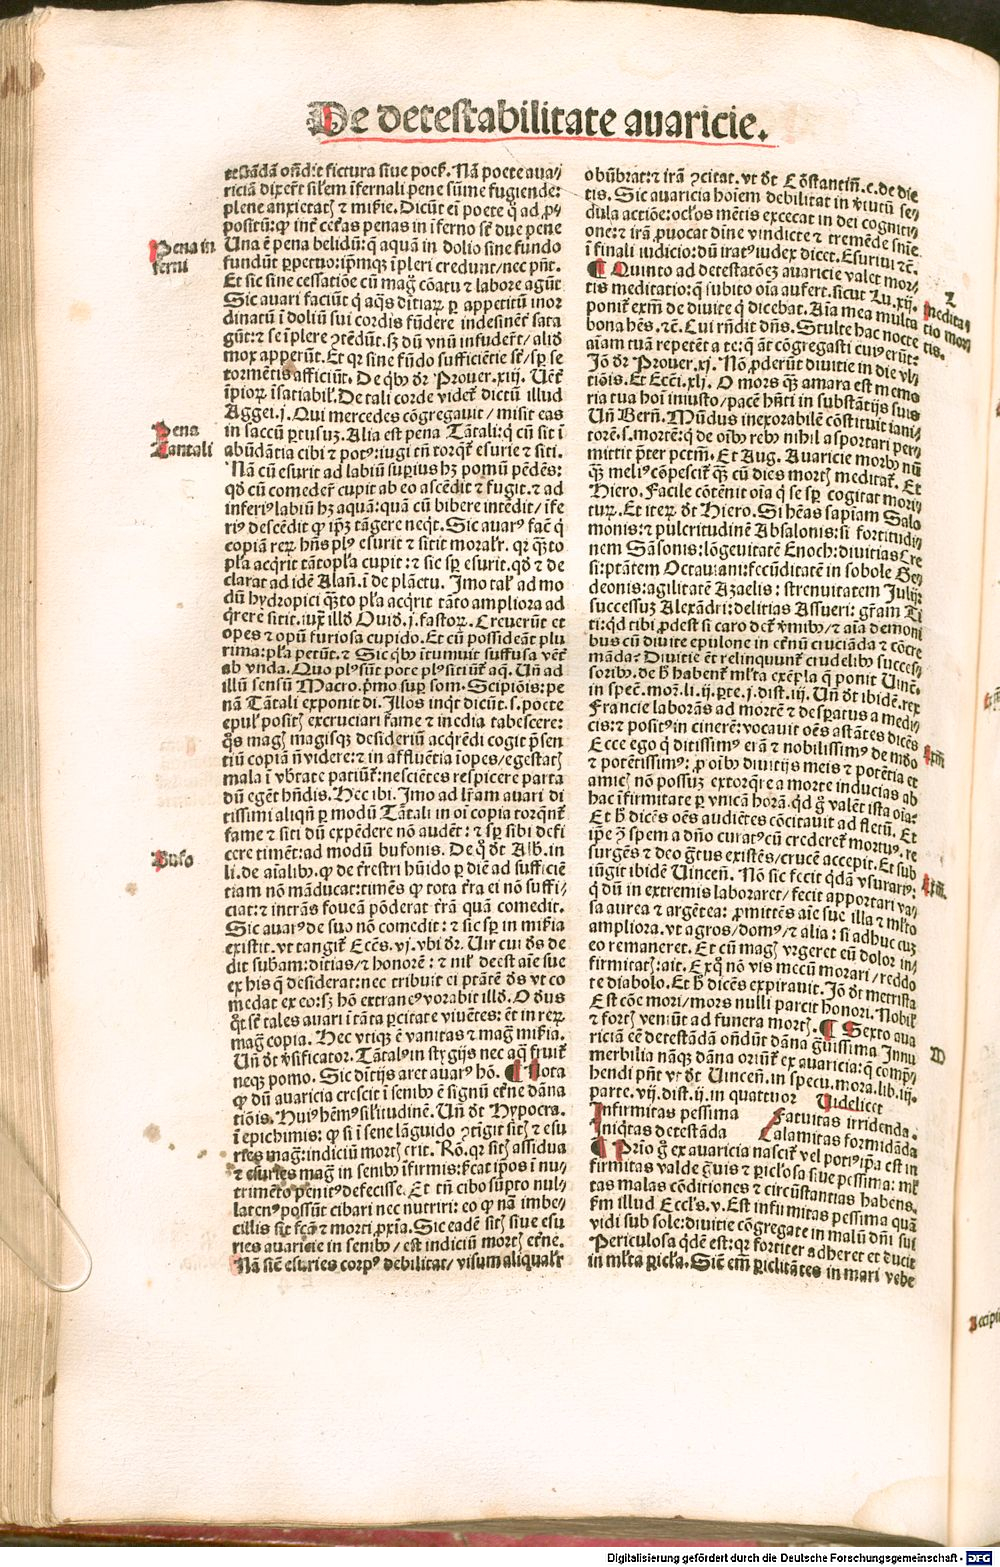 De detestabilitate auaricie.
ond̄it fictura siue poet̄. Nā poete aua/
riciā dixert̄ sil̄em īfernali pene sūme fugiende:
plene anxietatꝭ ⁊ mis̄ie. Dicūt em̄ poete ꝙ ad ꝓ/
positū: ꝙ int̄ cet̄as penas in īferno sūt due pene
Una ē pena belidū: ꝗ aquā in dolio sine fundo
fundūt ꝑpetuo: ip̄mqꝫ īpleri credunt/ nec pn̄t.
Et sic sine cessatiōe cū maḡ cōatu ⁊ labore agūt
Sic auari faciūt ꝗ aq̄s ditiaꝝ ꝑ appetitū inor
dinatū ī doliū sui cordis fūdere indesinēt̄ sata
gūt: ⁊ se īplere ꝯtēdūt. sꝫ dū vnū infudert̄/ aliꝺ
mox apperūt. Et qꝛ sine fūdo sufficiētie sūt/ sꝑ se
tormētis afficiūt. De qb̄ꝫ dr̄ Prouer. xiij. Uēt̄
īpioꝝ īsatiabil̄. De tali corde videt̄ dictū illud
Aggei. j. Qui mercedes cōgregauit/ misit eas
in saccū ꝑtusuꝫ. Alia est pena Tātali: ꝗ cū sit ī
abūdātia cibi ⁊ potꝰ: iugi tn̄ torqt̄ esurie ⁊ siti.
Nā cū esurit ad labiū supiꝰ hꝫ pomū pēdēs:
qꝺ cū comedet̄ cupit ab eo ascēdit ⁊ fugit. ⁊ ad
inferiꝰ labiū hꝫ aquā: quā cū bibere intēdit/ īfe
riꝰ descēdit ꝙ ip̄ꝫ tāgere neqt̄. Sic auarꝰ fac̄ ꝗ
copiā reꝝ hn̄s plꝰ esurit ⁊ sitit moralr̄. qꝛ q̄ꝫto
pl̄a acq̄rit tātopl̄a cupit: ⁊ sic sꝑ esurit. qꝺ ⁊ de
clarat ad idē Alan̄. ī de plāctu. Imo tal̄ ad mo
dū hydropici q̄ꝫto pl̄a acq̄rit tāto ampliora ad
q̄rere sitit. iux̄ illꝺ Ouiꝺ. j. fastoꝝ. Creuerūt et
opes ⁊ opū furiosa cupido. Et cū possideāt plu
rima: pl̄a petūt. ⁊ Sic qb̄ꝫ ītumuit suffusa vēt̄
ab vnda. Quo plꝰ sūt pote plꝰ sitiūt̄ aq̄. Un̄ ad
illū sensū Macro. ꝑmo suꝑ som. Scipiōis: pe
nā Tātali exponit di. Illos inqt̄ dicūt. s. poete
epul̄ positꝭ excruciari fame ⁊ inedia tabescere:
q̄s magꝭ magisqꝫ desideriū acq̄rēdi cogit p̄sen
tiū copiā nō videre: ⁊ in affluētia īopes/ egestatꝭ
mala ī vb̄tate patiūt̄: nesciētes respicere parta
dū egēt hn̄dis. Hec ibi. Imo ad lr̄am auari di
tissimi aliqn̄ ꝑ modū Tātali in oī copia torqnt̄
fame ⁊ siti dū expēdere nō audēt: ⁊ sꝑ sibi defi
cere timēt: ad modū bufonis. De q̄ dt̄ Alb. in
li. de aīalibꝫ. ꝙ de t̄restri hūido ꝑ diē ad sufficiē
tiam nō māducat: timēs ꝙ tota t̄ra ei nō suffi/
ciat: ⁊ intrās foueā pōderat t̄rā quā comedit.
Sic auarꝰ de suo nō comedit: ⁊ sic sꝑ in mis̄ia
existit. vt tangit̄ Ecc̄s. vj. vbi dr̄. Uir cui ds̄ de
dit subam: ditias/ ⁊ honorē: ⁊ nil̄ deest aīe sue
ex his q̄ desiderat: nec tribuit ei ptātē ds̄ vt co
medat ex eo: sꝫ hō extraneꝰ vorabit illꝺ. O dꝰs
qt̄ sūt tales auari ī tāta ꝑcitate viuētes: ēt in reꝝ
maḡ copia. Hec vtiqꝫ ē vanitas ⁊ maḡ mis̄ia.
Un̄ dt̄ v̄sificator. Tātalꝰ in stygijs nec aq̄ fruit̄
neqꝫ pomo. Sic dītijs aret auarꝰ hō. ¶ Nota
ꝙ dū auaricia crescit ī senibꝫ ē signū et̄ne dāna
tiōis. Huiꝰ hēmꝰ sil̄itudinē. Un̄ dt̄ Hypocra.
ī epichimis: ꝙ si ī sene lāguido ꝯtigit sitꝭ ⁊ esu
ries maḡ: indiciū mortꝭ erit. Rō. qꝛ sitꝭ assidua
⁊ esuries maḡ in senibꝫ īfirmis: fc̄at ip̄os ī nu/
trimēto penitꝰ defecisse. Et tn̄ cibo sūpto nul/
latenꝰ possūt cibari nec nutriri: eo ꝙ nā imbe/
cillis sit fc̄ā ⁊ morti ꝓxīa. Sic eadē sitꝭ siue esu
ries auaricie in senibꝫ/ est indiciū mortꝭ et̄ne.
Nā sicut̄ esuries corpꝰ debilitat/ visum aliqualr̄
Pena in
ferni
Pena
Tantali
Bufo
obūbrat: ⁊ irā ꝯcitat. vt dt̄ Cōstantin̄. c. de die
tis. Sic auaricia hoīem debilitat in v̄tutū se/
dula actiōe: ocl̄os mētis excecat in dei cognitī/
one: ⁊ irā ꝓuocat dīne vindicte ⁊ tremēde sn̄ie
ī finali iudicio: dū iratꝰ iudex dicet. Esuriui ⁊c̄.
¶ Quinto ad detestatōeꝫ auaricie valet mor/
tis meditatio: q̄ iubito oīa aufert. sicut Lu. xij.
ponit̄ exm̄ de diuite ꝗ dicebat. Aīa mea multa
bona hēs. ⁊c̄. Cui rn̄dit dn̄s. Stulte hac nocte
aīam tuā repetēt a te: q̄ āt cōgregasti cuiꝰ erūt:
Iō dr̄ Prouer. xj. Nō ꝓderūt diuitie in die vl̄/
tiōis. Et Ecci. xlj. O mors q̄ꝫ amara est memo
ria tua hoī iniusto/ pacē hn̄ti in substātijs suis
Un̄ Bern̄. Mūdus inexorabilē cōstituit iani/
torē. s. mortē: q̄ de oībꝫ rebꝫ nihil asportari per/
mittit p̄ter pctm̄. Et Aug. Auaricie morbꝫ nū
q̄ꝫ meliꝰ cōpescit̄ q̄ꝫ cū dies mortꝭ meditat̄. Et
Hiero. Facile cōtēnit oīa ꝗ se sꝑ cogitat mori/
tuꝝ. Et iteꝝ dt̄ Hiero. Si hēas sapiam Salo
monis: ⁊ pulcritudinē Absalonis: si fortitudi/
nem Sāsonis: lōgeuitatē Enoch: diuitias Cre
si: ptātem Octauiani: fecūditatē in sobole Ge/
deonis: agilitatē Azaelis: strenuitatem Iulij:
successuꝫ Alexādri: delitias Assueri: gr̄am Ti
ti: qd tibi ꝓdest si caro det̄ v̄mibꝫ/ ⁊ aīa demoni
bus cū diuite epulone in et̄nū cruciāda ⁊ cōcre
māda? Diuitie ēt relinquunt̄ crudelibꝫ succes/
soribꝫ. de h̄ habent̄ ml̄ta exēpl̄a ꝗ ponit Uincē.
in spec̄. mor̄. li. ij. ꝑte. j. dist. iij. Un̄ dt̄ ibidē. rex
Francie laborās ad mortē ⁊ desꝑatus a medi/
cis: ⁊ positꝰ in cinerē: vocauit oēs astātes dicēs
Ecce ego ꝗ ditissimꝰ erā ⁊ nobilissimꝰ de mūdo
⁊ potētissimꝰ: ꝓ oībꝫ diuitijs meis ⁊ potētia et
amicꝭ nō possuꝫ extorq̄re a morte inducias ab
hac īfirmitate ꝑ vnicā horā. qd ḡ valēt ista oīa?
Et h̄ dicēs oēs audiētes cōcitauit ad fletū. Et
ip̄e ꝫ spem a dn̄o curatꝰ cū crederet̄ mortuꝰ. re
surgēs ⁊ deo gr̄tus existēs/ crucē accepit. Et sub
iūgit ibidē Uincen̄. Nō sic fecit qdā vsurariꝰ:
ꝗ dū in extremis laboraret/ fecit apportari va/
sa aurea ⁊ argētea: ꝓmittēs aīe sue illa ⁊ ml̄to
ampliora. vt agros/ domꝰ/ ⁊ alia: si adhuc cuꝫ
eo remaneret. Et cū magꝭ vrgeret eū dolor in/
firmitatꝭ: ait. Exq̄ nō vis mecū morari/ reddo
te diabolo. Et h̄ dicēs expirauit. Iō dt̄ metrista
Est cōe mori/ mors nulli parcit honori. Nobil̄
⁊ fortꝭ veniūt ad funera mortꝭ. ¶ Sexto aua
riciā cē detestādā ondūt dāna gᷓuissima Innu
merbilia nāqꝫ dāna oriūt̄ ex auaricia: q̄ comp̄/
hendi pn̄t vt dt̄ Uincen̄. in specu. mora. lib. iij.
parte. vij. dist. ij. in quattuor Uidelicet
Infirmitas pessima Fatuitas irridenda.
Iniq̄tas detestāda Calamitas formidāda
¶ Prīo ḡ ex auaricia nascit̄ vel potiꝰ ip̄a est in
firmitas valde gᷓuis ⁊ ꝑicl̄osa siue pessima: ml̄
tas malas cōditiones ⁊ circūstantias habens.
km̄ illud Eccl̄s. v. Est infirmitas pessima quā
vidi sub sole: diuitie cōgregate in malū dn̄i sui
Periculosa qdē est: qꝛ fortiter adheret et ducit
in ml̄ta ꝑicl̄a. Sicut̄ em̄ ꝑiclitātes in mari vehe
L
Medita/
tio mor/
tis.
Exm̄
Exm̄.
M